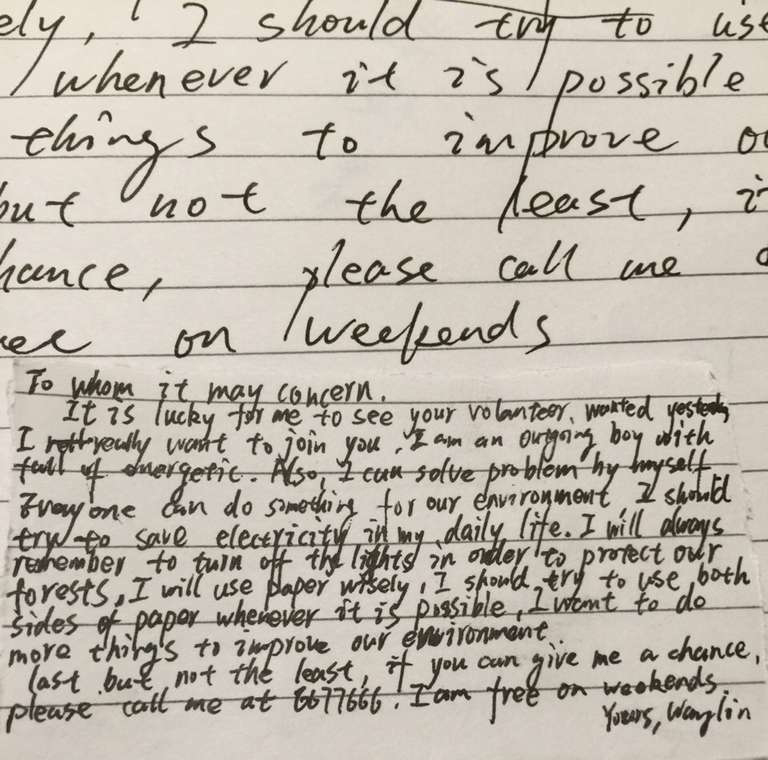 ely, I should try to use
whenever it is possible
things to improve
but not the least, i
hance, please call me
on weekends
To whom it may concern.
It is lucky for me to see your volunteer, wanted yesterday
I really want to join you, I am an outgoing boy with
full of energetic. Also, I can solve problem by myself
Everyone can do something for our environment I should
try to save electricity in my daily life. I will always
remember to turn off the lights in order to protect our
forests, I will use paper wisely, I should try to use both
sides of paper whenever it is possible, I want to do
more things to improve our environment.
last but not the least, if you can give me a chance,
please call me at 6677666. I am free on weekends.
Yours, Wanglin